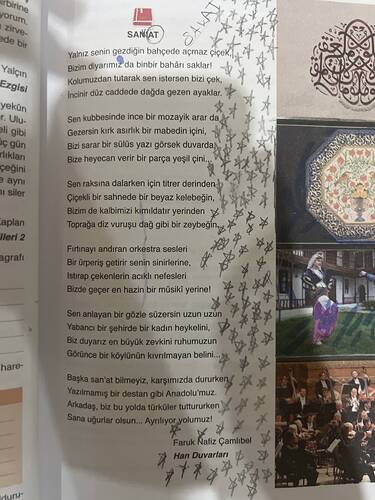 SANAT
SANAT
Yalnız senin gezdiğin bahçede açmaz çiçek,
Bizim diyarımız da binbir baharı saklar!
Kolumuzdan tutarak sen istersen bizi çek,
İncinir düz caddede dağda gezen ayaklar.
Sen kubbesinde ince bir mozayik arar da
Gezersin kırk asırlık bir mabedin içini,
Bizi sarar bir sülüs yazı görsek duvarda,
Bize heyecan verir bir parça yeşil çini...
Sen raksına dalarken için titrer derinden
Çiçekli bir sahnede bir beyaz kelebeğin,
Bizim de kalbimizi kımıldatır yerinden
Toprağa diz vuruşu dağ gibi bir zeybeğin.
Fırtınayı andıran orkestra sesleri
Bir ürperiş getirir senin sinirlerine,
Istırap çekenlerin acıklı nefesleri
Bizde geçer en hazin bir mûsikî yerine!
Sen anlayan bir gözle süzersin uzun uzun
Yabancı bir şehirde bir kadın heykelini,
Biz duyarız en büyük zevkini ruhumuzun
Görünce bir köylünün kıvrılmayan belini...
Başka san'at bilmeyiz, karşımızda dururken
Yazılmamış bir destan gibi Anadolu'muz.
Arkadaş, biz bu yolda türküler tuttururken
Sana uğurlar olsun... Ayrılıyor yolumuz!
Faruk Nafiz Çamlıbel
Han Duvarları
birine
yorum.
zirve-
de bir
Yalçın
Ezgisi
yekûn
r. Ulu-
eli gibi
üç gün
rlıkları
çeğini
e aynı
nı siler
Kaplan
lileri 2
agrafı
hare-
duru-